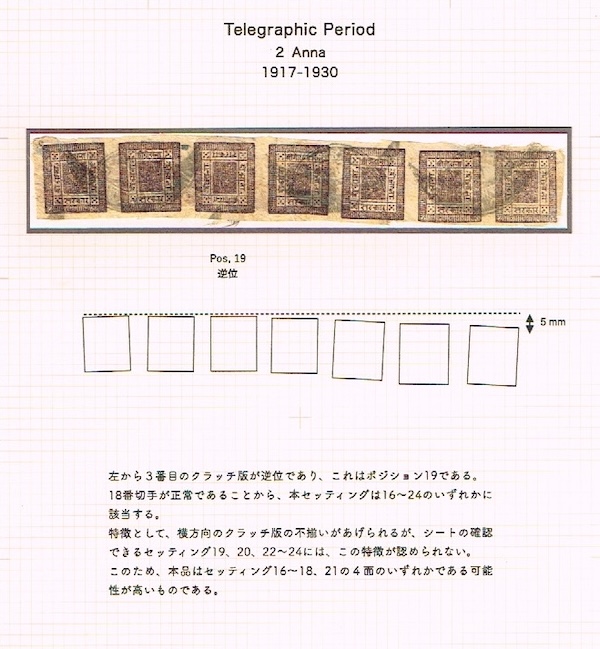 Telegraphic Period
2 Anna
1917-1930
Pos, 19
逆位
5 mm
左から3番目のクラッチ版が逆位であり、これはポジション19である。
18番切手が正常であることから、本セッティングは16~24のいずれかに
該当する。
特徴として、横方向のクラッチ版の不揃いがあげられるが、シートの確認
できるセッティング19、20、22~24には、この特徴が認められない。
このため、本品はセッティング16~18、21の4面のいずれかである可能
性が高いものである。